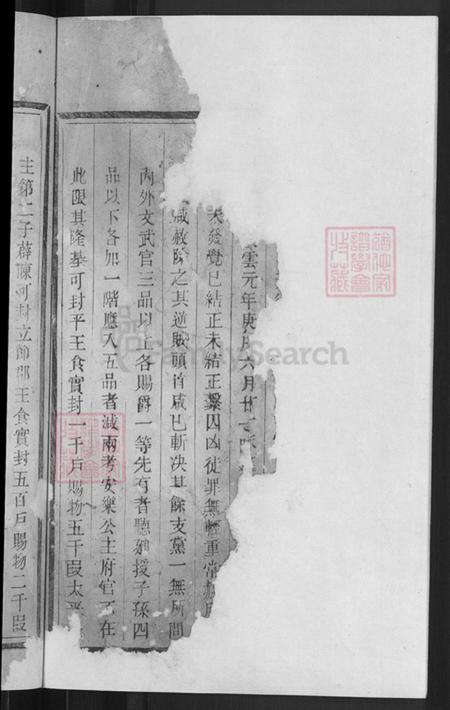 雲元年庚戌六月廿
未發覺已結正未結正繫囚凶徒罪無輕重常赦所
咸赦除之其逆賊頭首咸已斬決其餘支黨一無所問
內外文武官三品以上各賜爵一等先有者聽迴授子孫四
品以下各加一階應入五品者減兩考安樂公主府官不在
此限其隆基可封平王食實封一千戶賜物五千段太平
主第二子薜陳可封立節郡王食實封五百戶賜物二千段
FamilySearch